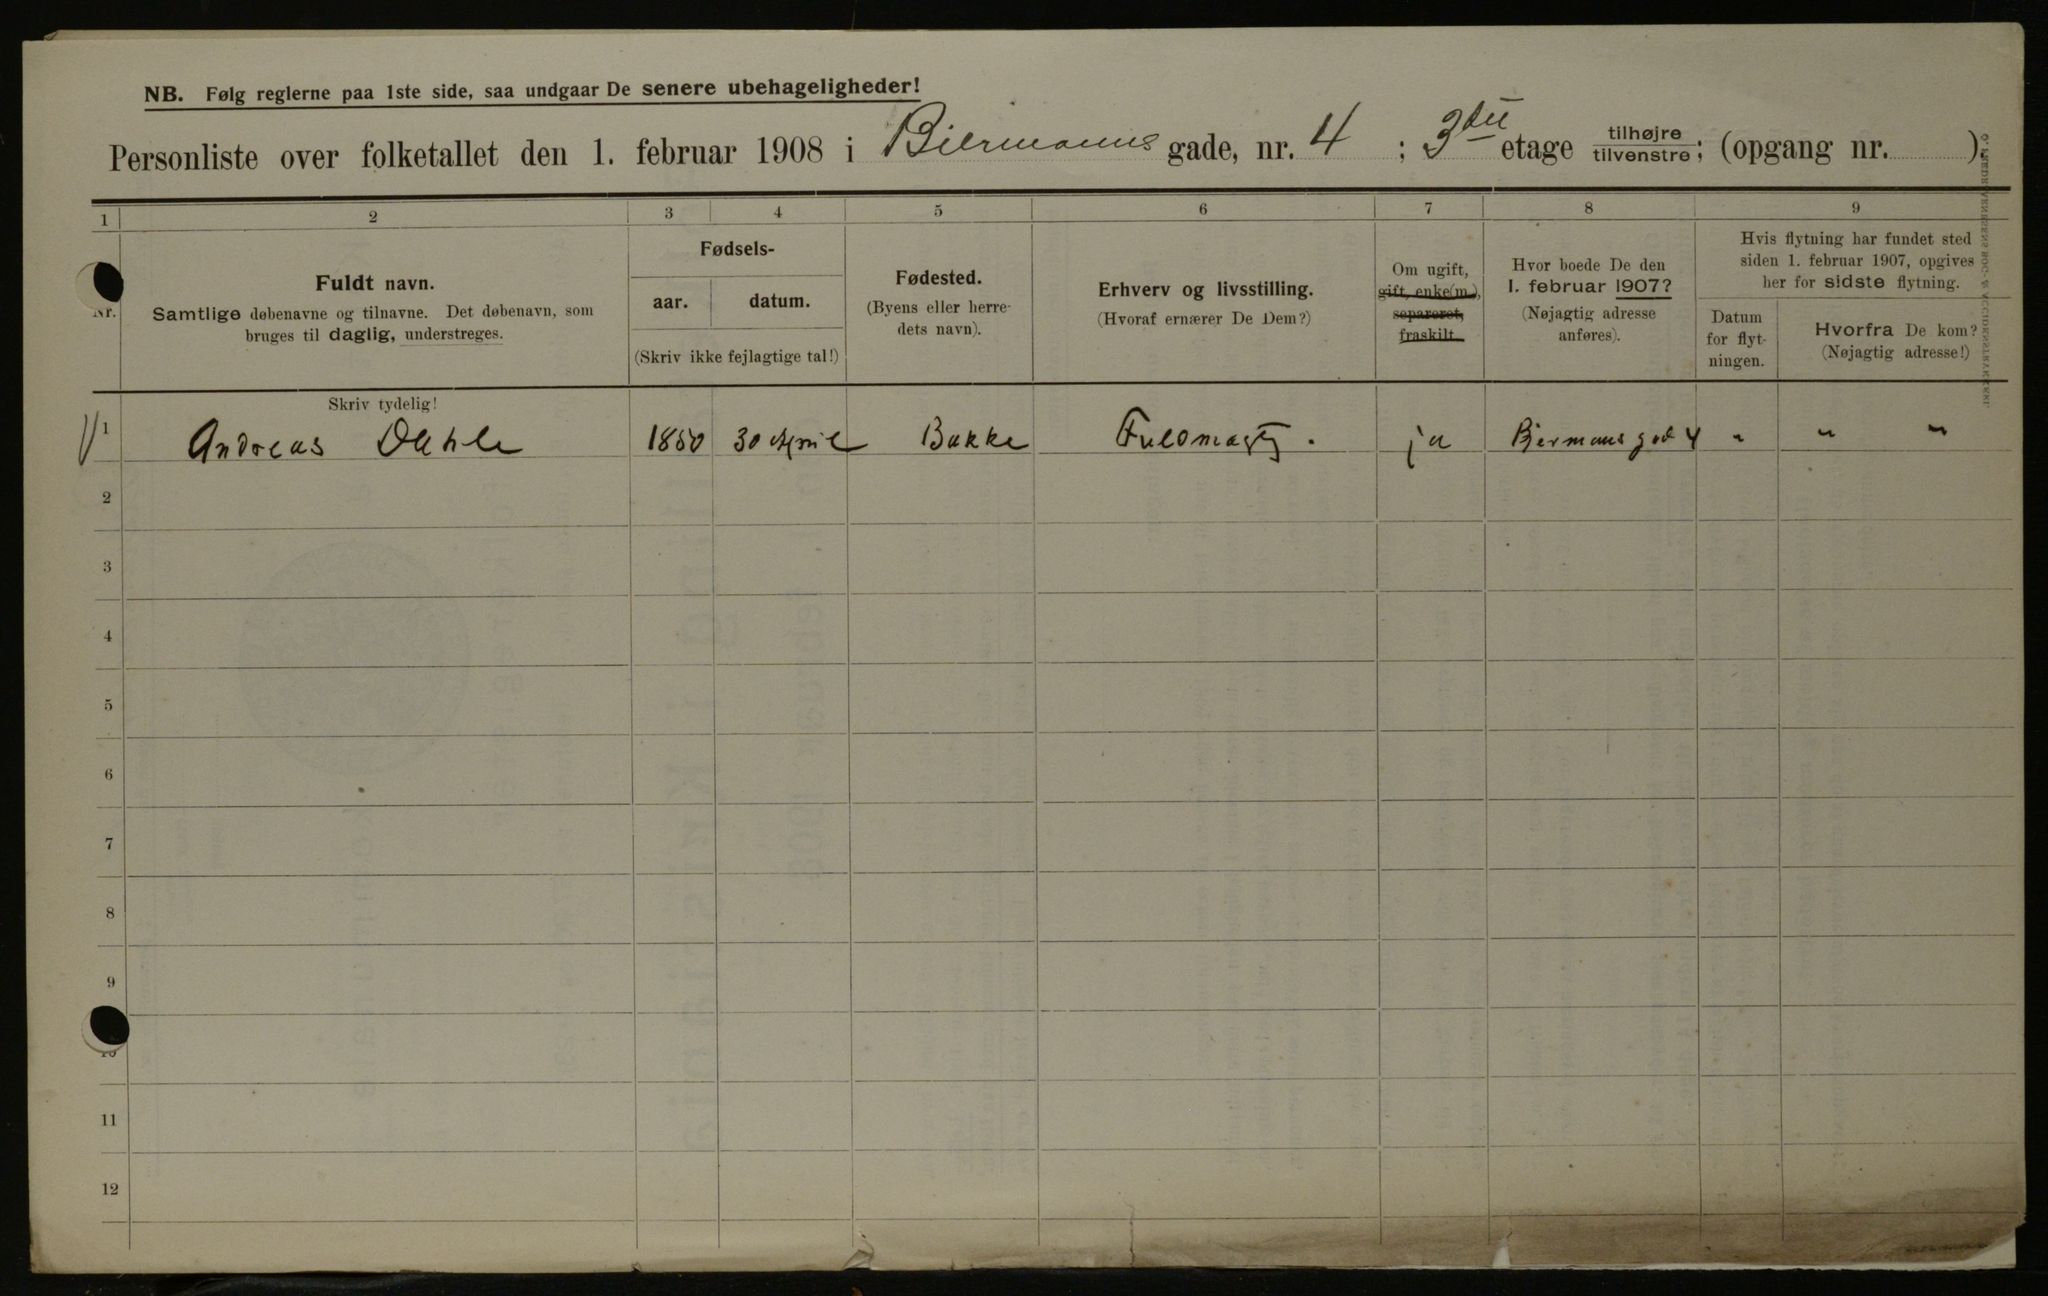 NB. Følg reglerne paa 1ste side, saa undgaar De senere ubehageligheder!
Personliste over folketallet den 1. februar 1908 i Biermanns gade, nr. 4 ; 3die etage tilhøjre tilvenstre; (opgang nr. ).
1 2 3 4 5 6 7 8 9
Nr.
Fuldt navn.
Samtlige døbenavne og tilnavne. Det døbenavn, som
bruges til daglig, understreges.
Skriv tydelig!
Fødsels-
aar. datum.
(Skriv ikke fejlagtige tal!)
Fødested.
(Byens eller herre-
dets navn).
Erhverv og livsstilling.
(Hvoraf ernærer De Dem?)
Om ugift,
gift, enke(m.),
separeret,
fraskilt.
Hvor boede De den
1. februar 1907?
(Nøjagtig adresse
anføres).
Hvis flytning har fundet sted
siden 1. februar 1907, opgives
her for sidste flytning.
Datum
for flyt-
ningen.
Hvorfra De kom?
(Nøjagtig adresse!)
1 Andreas Dahle 1850 30 April Bakke Fuldmægtig. ja Biermansgad 4 " " "
2
3
4
5
6
7
8
9
10
11
12